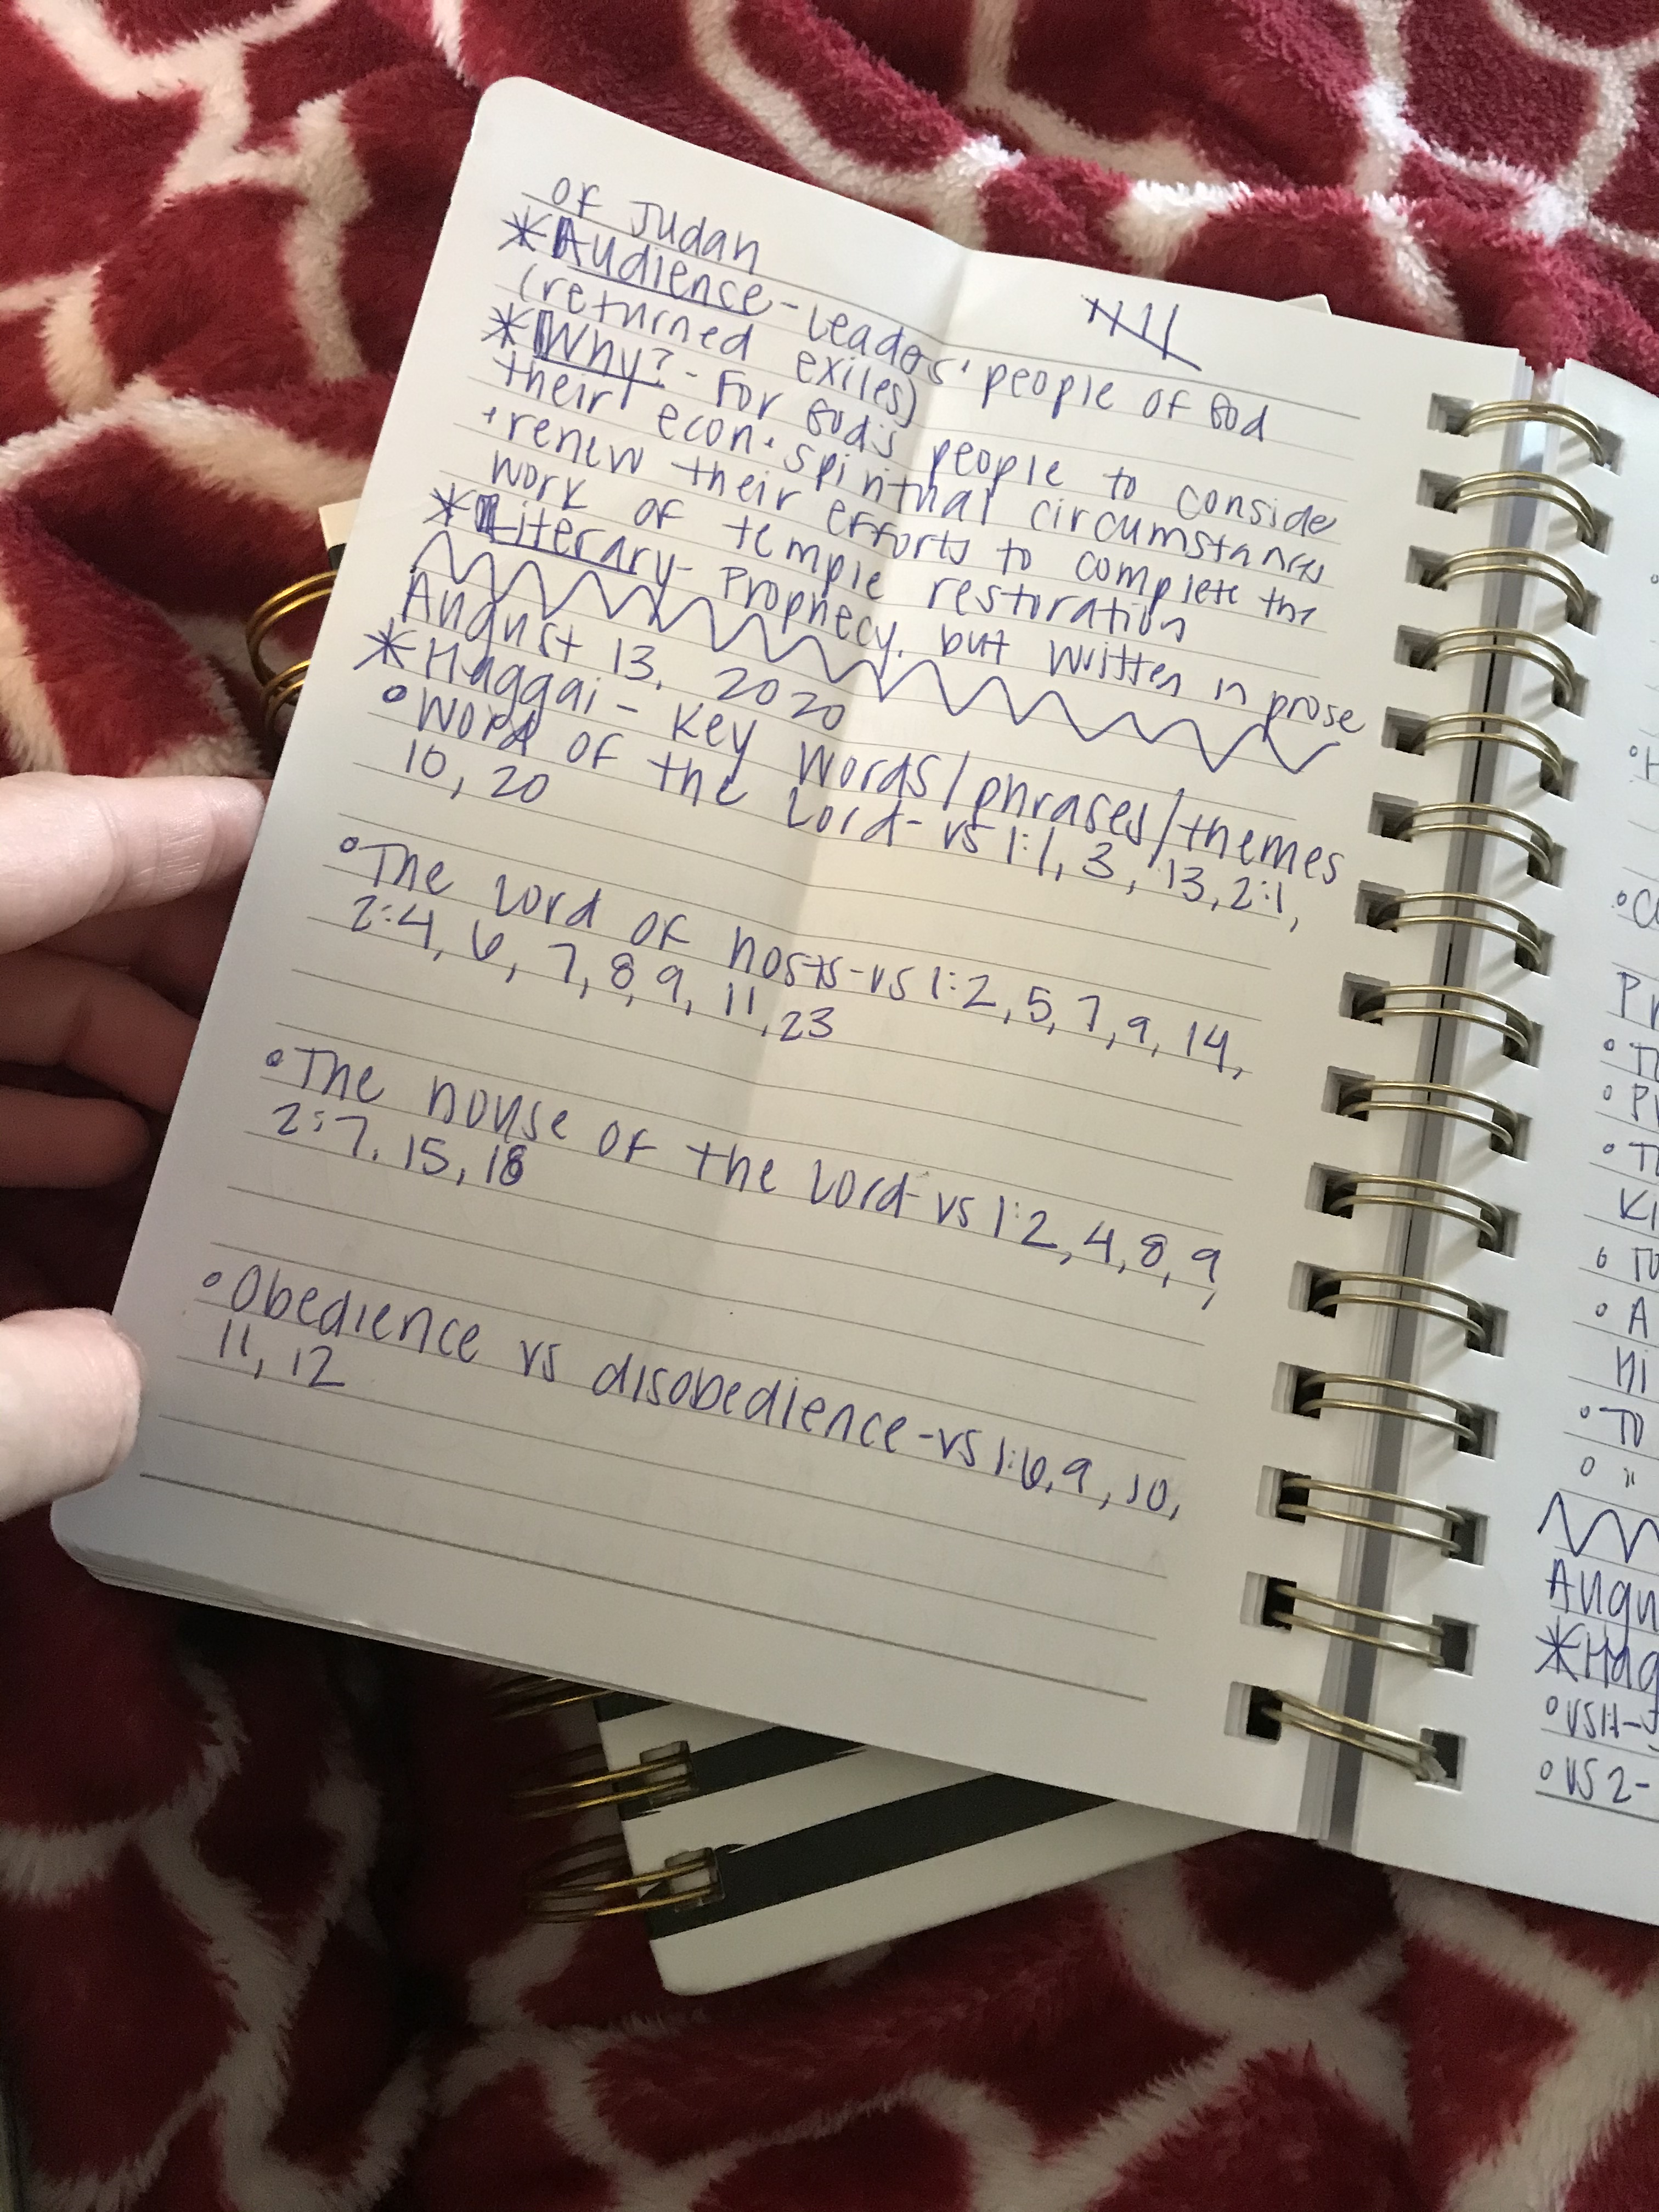 of Judah
*Audience - Leaders' people of God
(returned exiles)
*Why? - For God's people to conside
their econ. spiritual circumstances
+ renew their efforts to complete the
work of temple restoration
*Literary - Prophecy, but written in prose
August 13, 2020
*Haggai - Key Words/phrases/themes
•Word of the Lord - vs 1:1, 3, 13, 2:1,
10, 20
•The Lord of hosts - vs 1:2, 5, 7, 9, 14,
2:4, 6, 7, 8, 9, 11, 23
•The house of the Lord - vs 1:2, 4, 8, 9,
2:7, 15, 18
•Obedience vs disobedience - vs 1:6, 9, 10,
11, 12
•A
Augu
*Hag
•vs 2-